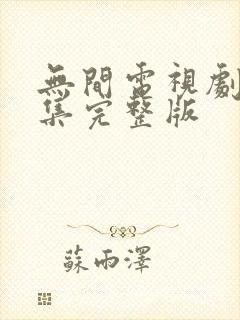 無間電視劇
集完整版
蘇雨澤